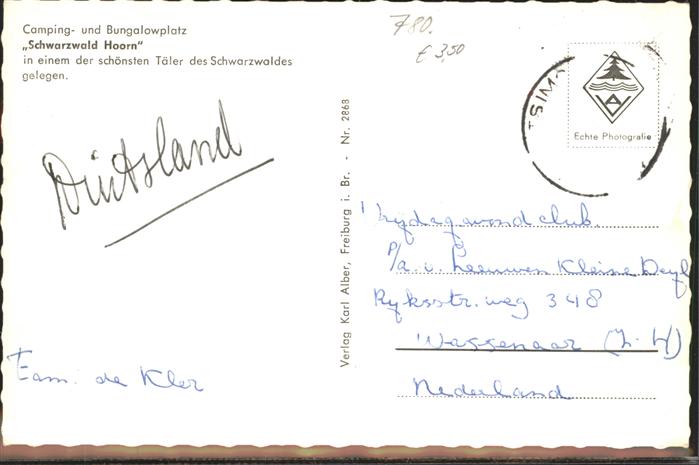 Camping- und Bungalowplatz
„Schwarzwald Hoorn"
in einem der schönsten Täler des Schwarzwaldes
gelegen.
Duitsland
Fam. de Kler
Verlag Karl Alber, Freiburg i. Br. - Nr. 2868
780.
€ 3,50
TSIM
Echte Photografie
P/a. v. Leeuwen Kleine Deyl
Ryksstr. weg 348
Wassenaar (Z. H)
Nederland